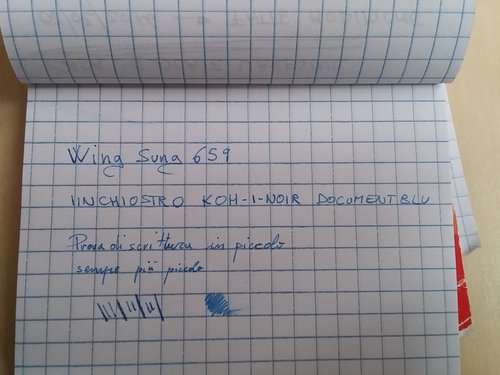 Wing Sung 659
IINCHIOSTRO KOH-I-NOIR DOCUMENT BLU
Prova di scrittura in piccolo
sempre più piccolo